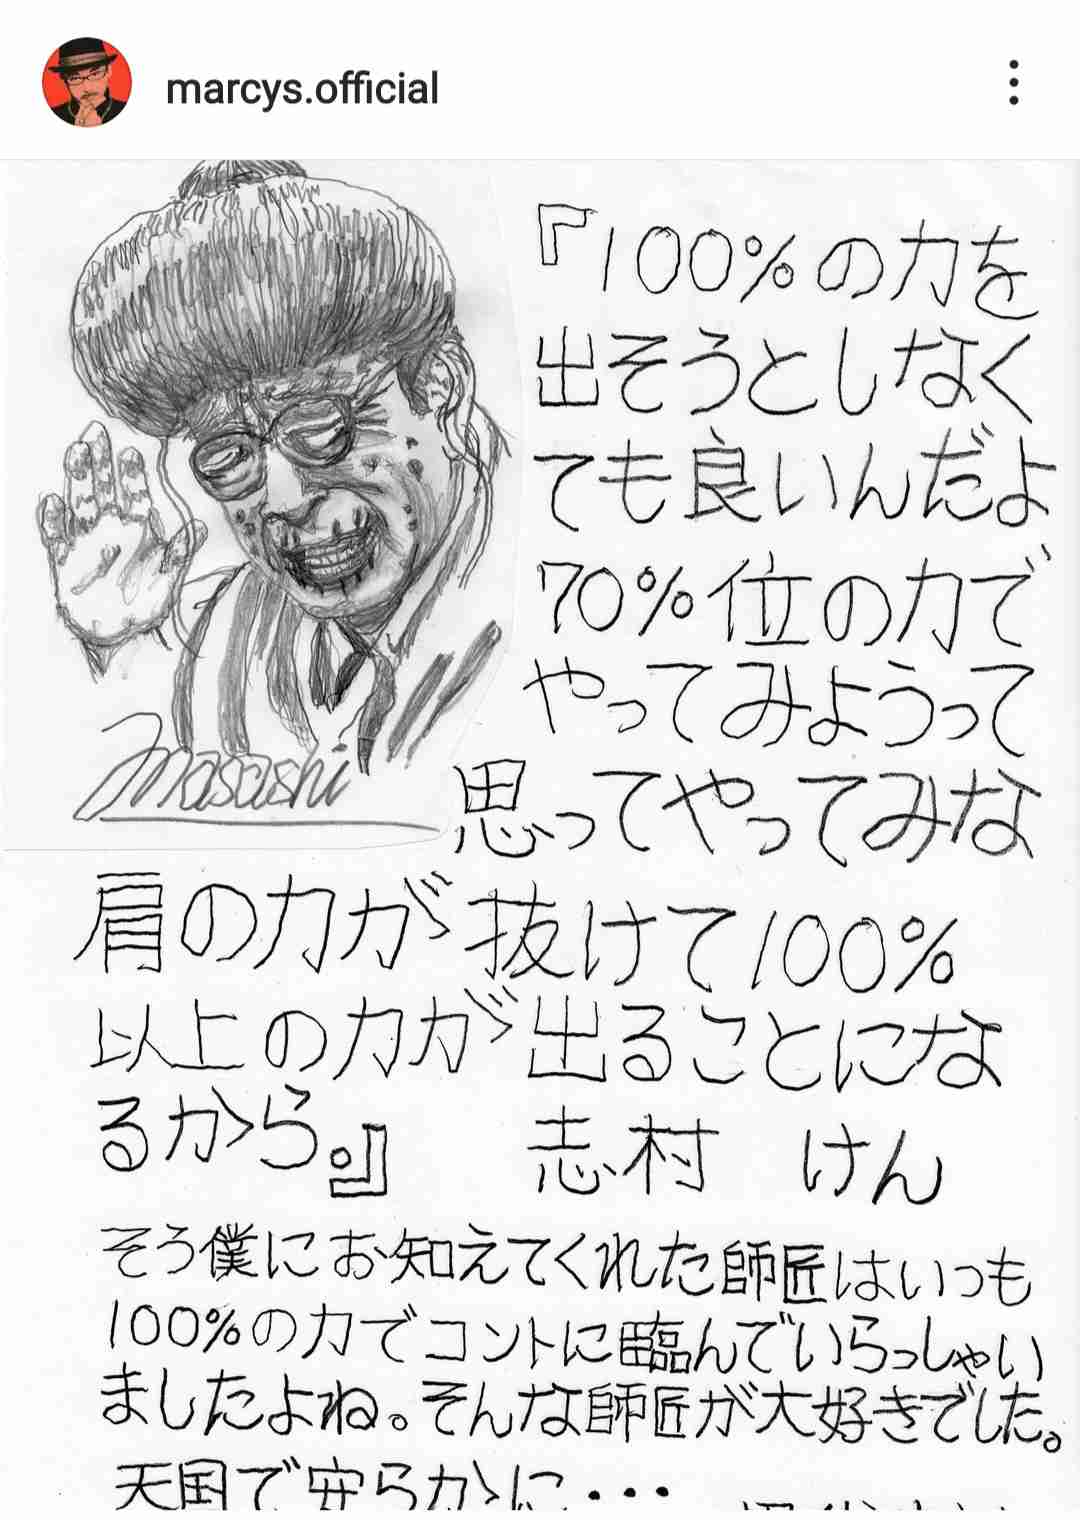 marcys.official
『100%の力を
出そうとしなく
ても良いんだよ
70%位の力で
やってみようって
思ってやってみな
肩の力が抜けて100%
以上の力が出ることにな
るから。』 志村 けん
Masashi
そう僕にお知えてくれた師匠はいつも
100%の力でコントに臨んでいらっしゃい
ましたよね。そんな師匠が大好きでした。
天国で安らかに・・・